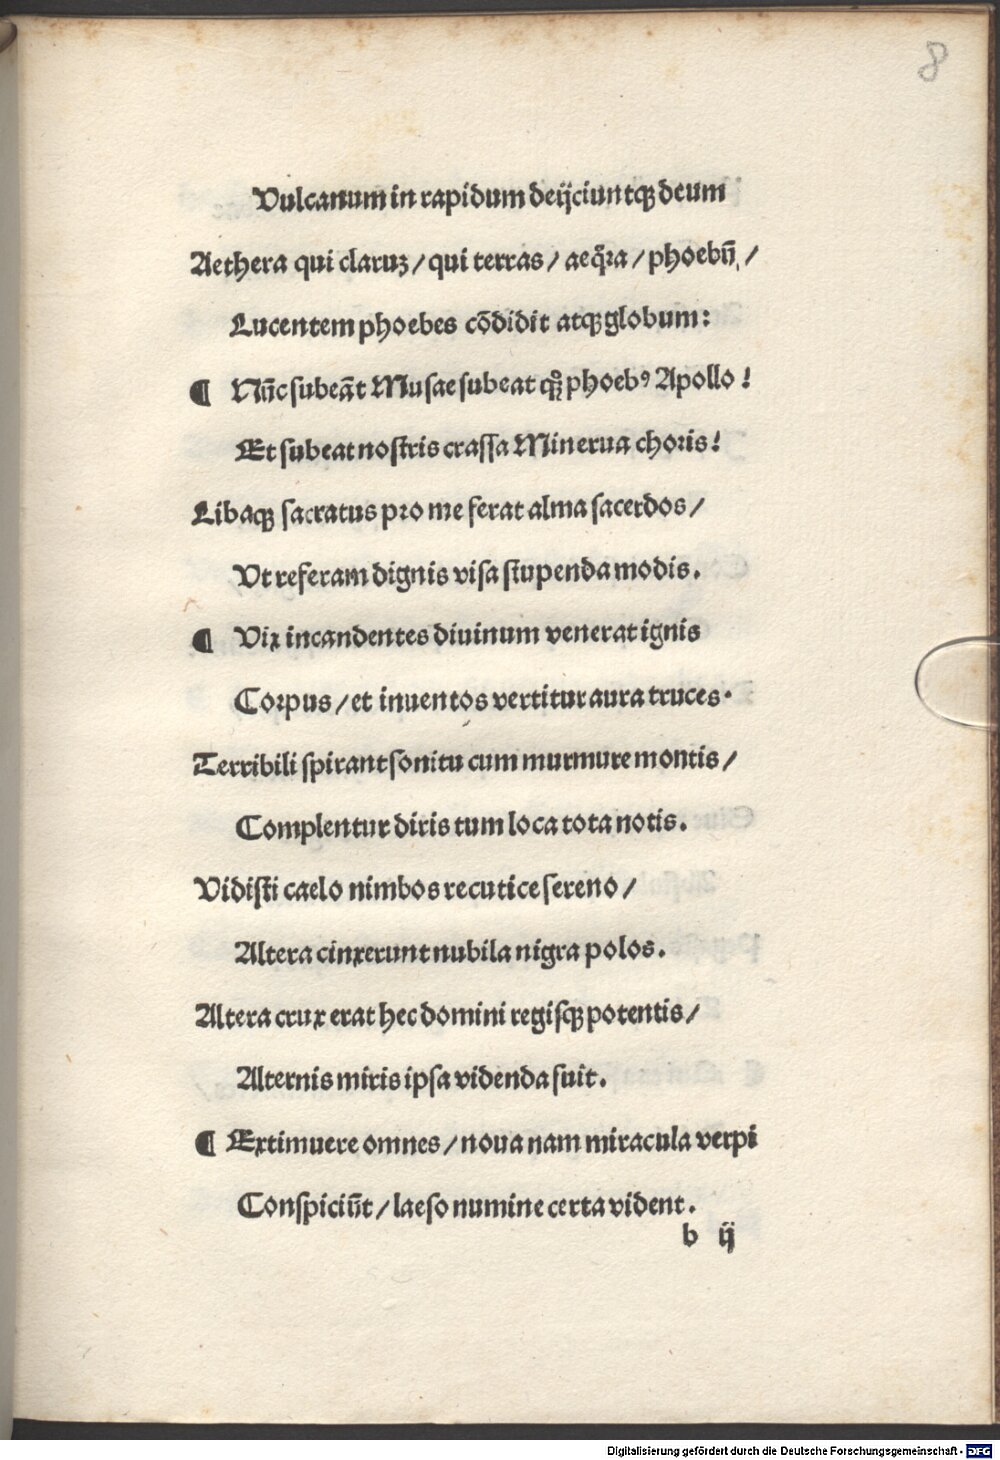 8
Vulcanum in rapidum deijciuntqꝫ deum
Aethera qui claruꝫ / qui terras / aeq̊ra / phoebū /
Lucentem phoebes cōdidit atqꝫ globum:
¶ Nūc subeāt Musae subeat qꝫ phoebꝰ Apollo!
Et subeat nostris crassa Minerua choris!
Libaqꝫ sacratus pro me ferat alma sacerdos /
Vt referam dignis visa stupenda modis.
¶ Vix incandentes diuinum venerat ignis
Corpus / et inuentos vertitur aura truces.
Terribili spirant sonitu cum murmure montis /
Complentur diris tum loca tota notis.
Vidisti caelo nimbos recutice sereno /
Altera cinxerunt nubila nigra polos.
Altera crux erat hec domini regisqꝫ potentis /
Alternis miris ipsa videnda fuit.
¶ Extimuere omnes / noua nam miracula verpi
Conspiciūt / laeso numine certa vident.
b ij
Digitalisierung gefördert durch die Deutsche Forschungsgemeinschaft - DFG